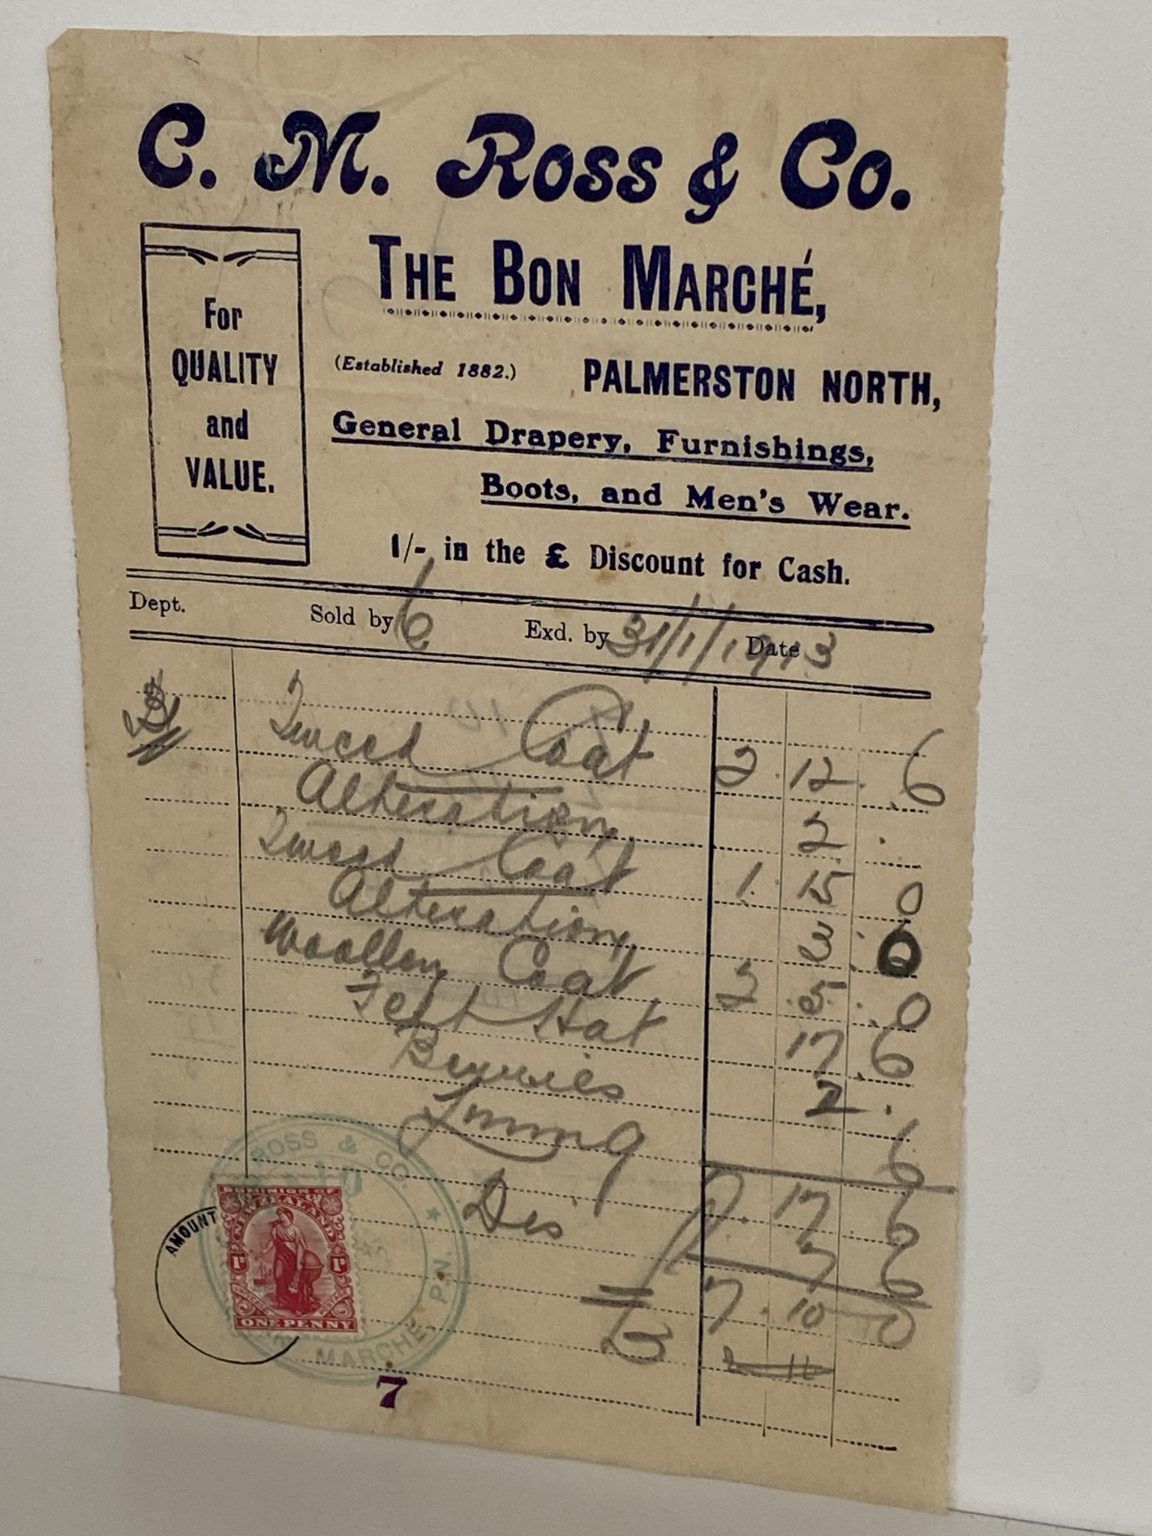 C. M. Ross & Co.
THE BON MARCHÉ,
For
QUALITY
and
VALUE.
(Established 1882.) PALMERSTON NORTH,
General Drapery, Furnishings,
Boots, and Men's Wear.
1/- in the £ Discount for Cash.
Dept. Sold by 6 Exd. by Date 31/1/1913
Tweed Coat 2. 12. 6
Alteration 2 .
Tweed Coat 1. 15 0
Alteration 3 . 6
Woollen Coat 2 . 5 . 0
Felt Hat 17. 6
2 .
6
7. 17 6
Dis 7 6
7. 10 0
ROSS & CO
MARCHE P.N.
DOMINION OF
NEW ZEALAND
1D 1D
ONE PENNY
AMOUNT
7